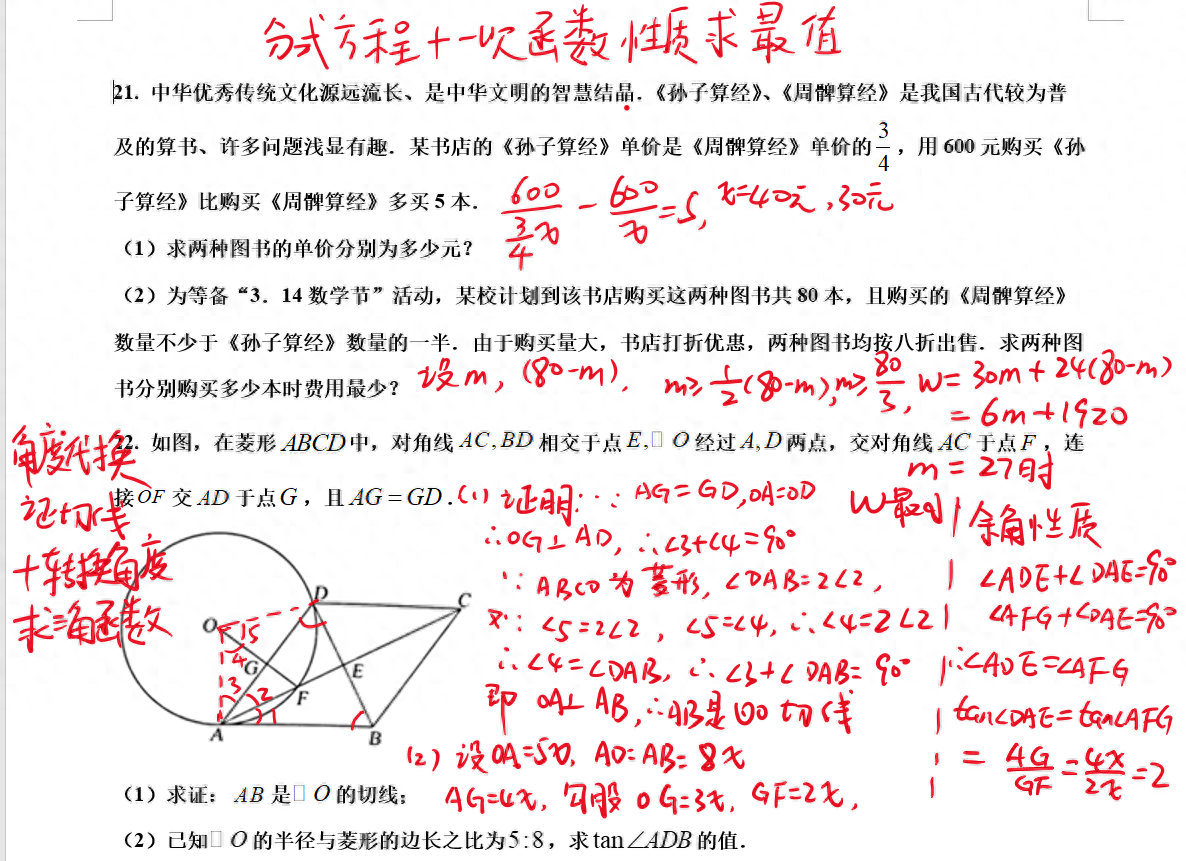 分式方程+一次函数性质求最值
21. 中华优秀传统文化源远流长、是中华文明的智慧结晶.《孙子算经》、《周髀算经》是我国古代较为普
及的算书、许多问题浅显有趣. 某书店的《孙子算经》单价是《周髀算经》单价的3/4, 用600元购买《孙
子算经》比购买《周髀算经》多买5本.
600/(3/4x) - 600/x = 5, x=40元, 30元
(1) 求两种图书的单价分别为多少元?
(2) 为等备“3. 14数学节”活动, 某校计划到该书店购买这两种图书共80本, 且购买的《周髀算经》
数量不少于《孙子算经》数量的一半. 由于购买量大, 书店打折优惠, 两种图书均按八折出售. 求两种图
书分别购买多少本时费用最少?
设m, (80-m). m≥1/2(80-m), m≥80/3, W=30m+24(80-m)
=6m+1920
m=27时
W最小
22. 如图, 在菱形ABCD中, 对角线AC,BD相交于点E,□ O经过A,D两点, 交对角线AC于点F, 连
接OF交AD于点G, 且AG=GD.
角度代换
证切线
+转换角度
求三角函数
(1) 证明: ∵AG=GD,OA=OD
∴OG⊥AD, ∴∠3+∠4=90°
∵ABCD为菱形, ∠DAB=2∠2,
又∵∠5=2∠2, ∠5=∠4, ∴∠4=2∠2
∴∠4=∠DAB, ∴∠3+∠DAB=90°
即OA⊥AB, ∴AB是⊙O切线
(2) 设OA=5x, AD=AB=8x
AG=4x, 勾股OG=3x, GF=2x,
余角性质
∠ADE+∠DAE=90°
∠AFG+∠DAE=90°
∴∠ADE=∠AFG
tan∠DAE=tan∠AFG
=AG/GF=4x/2x=2
D
C
O
5
1
4
G
E
3
2
F
1
A
B
(1) 求证: AB是□ O的切线;
(2) 已知□ O的半径与菱形的边长之比为5:8, 求tan∠ADB的值.